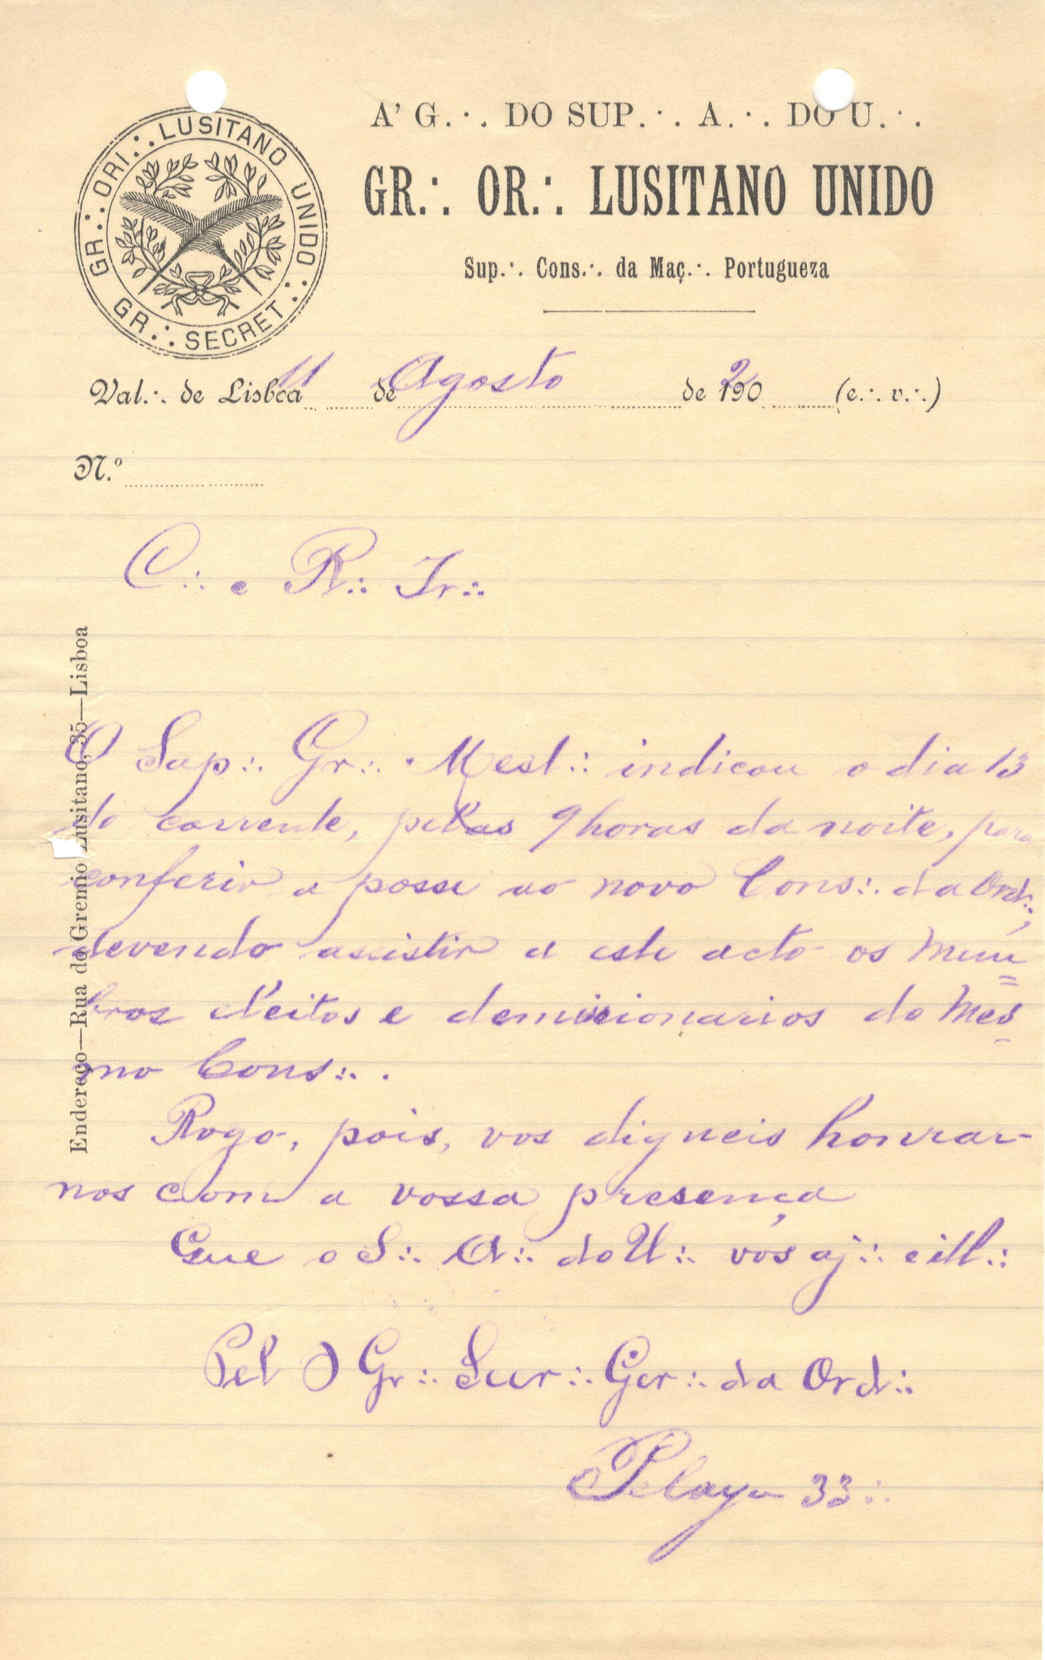 A' G.·. DO SUP.·. A.·. DO U.·.
GR.·. OR.·. LUSITANO UNIDO
Sup.·. Cons.·. da Maç.·. Portugueza
GR.·. ORI.·. LUSITANO UNIDO.·.
GR.·. SECRET.·.
Val.·. de Lisboa 11 de Agosto de 190 2 (e.·. v.·.)
N.º
C.·. e R.·. Ir.·.
O Sap.·. Gr.·. Mest.·. indicou o dia 13
do corrente, pelas 9 horas da noite, para
conferir a posse ao novo Cons.·. da Ord.·.,
devendo assistir a este acto os mem=
bros eleitos e demissionarios do mes-
mo Cons.·. .
Rogo, pois, vos digneis honrar-
nos com a vossa presença
Que o S.·. A.·. do U.·. vos aj.·. e ill.·.
Pel O Gr.·. Secr.·. Ger.·. da Ord.·.
Pelayo 33.·.
Endereço—Rua do Gremio Lusitano, 35—Lisboa